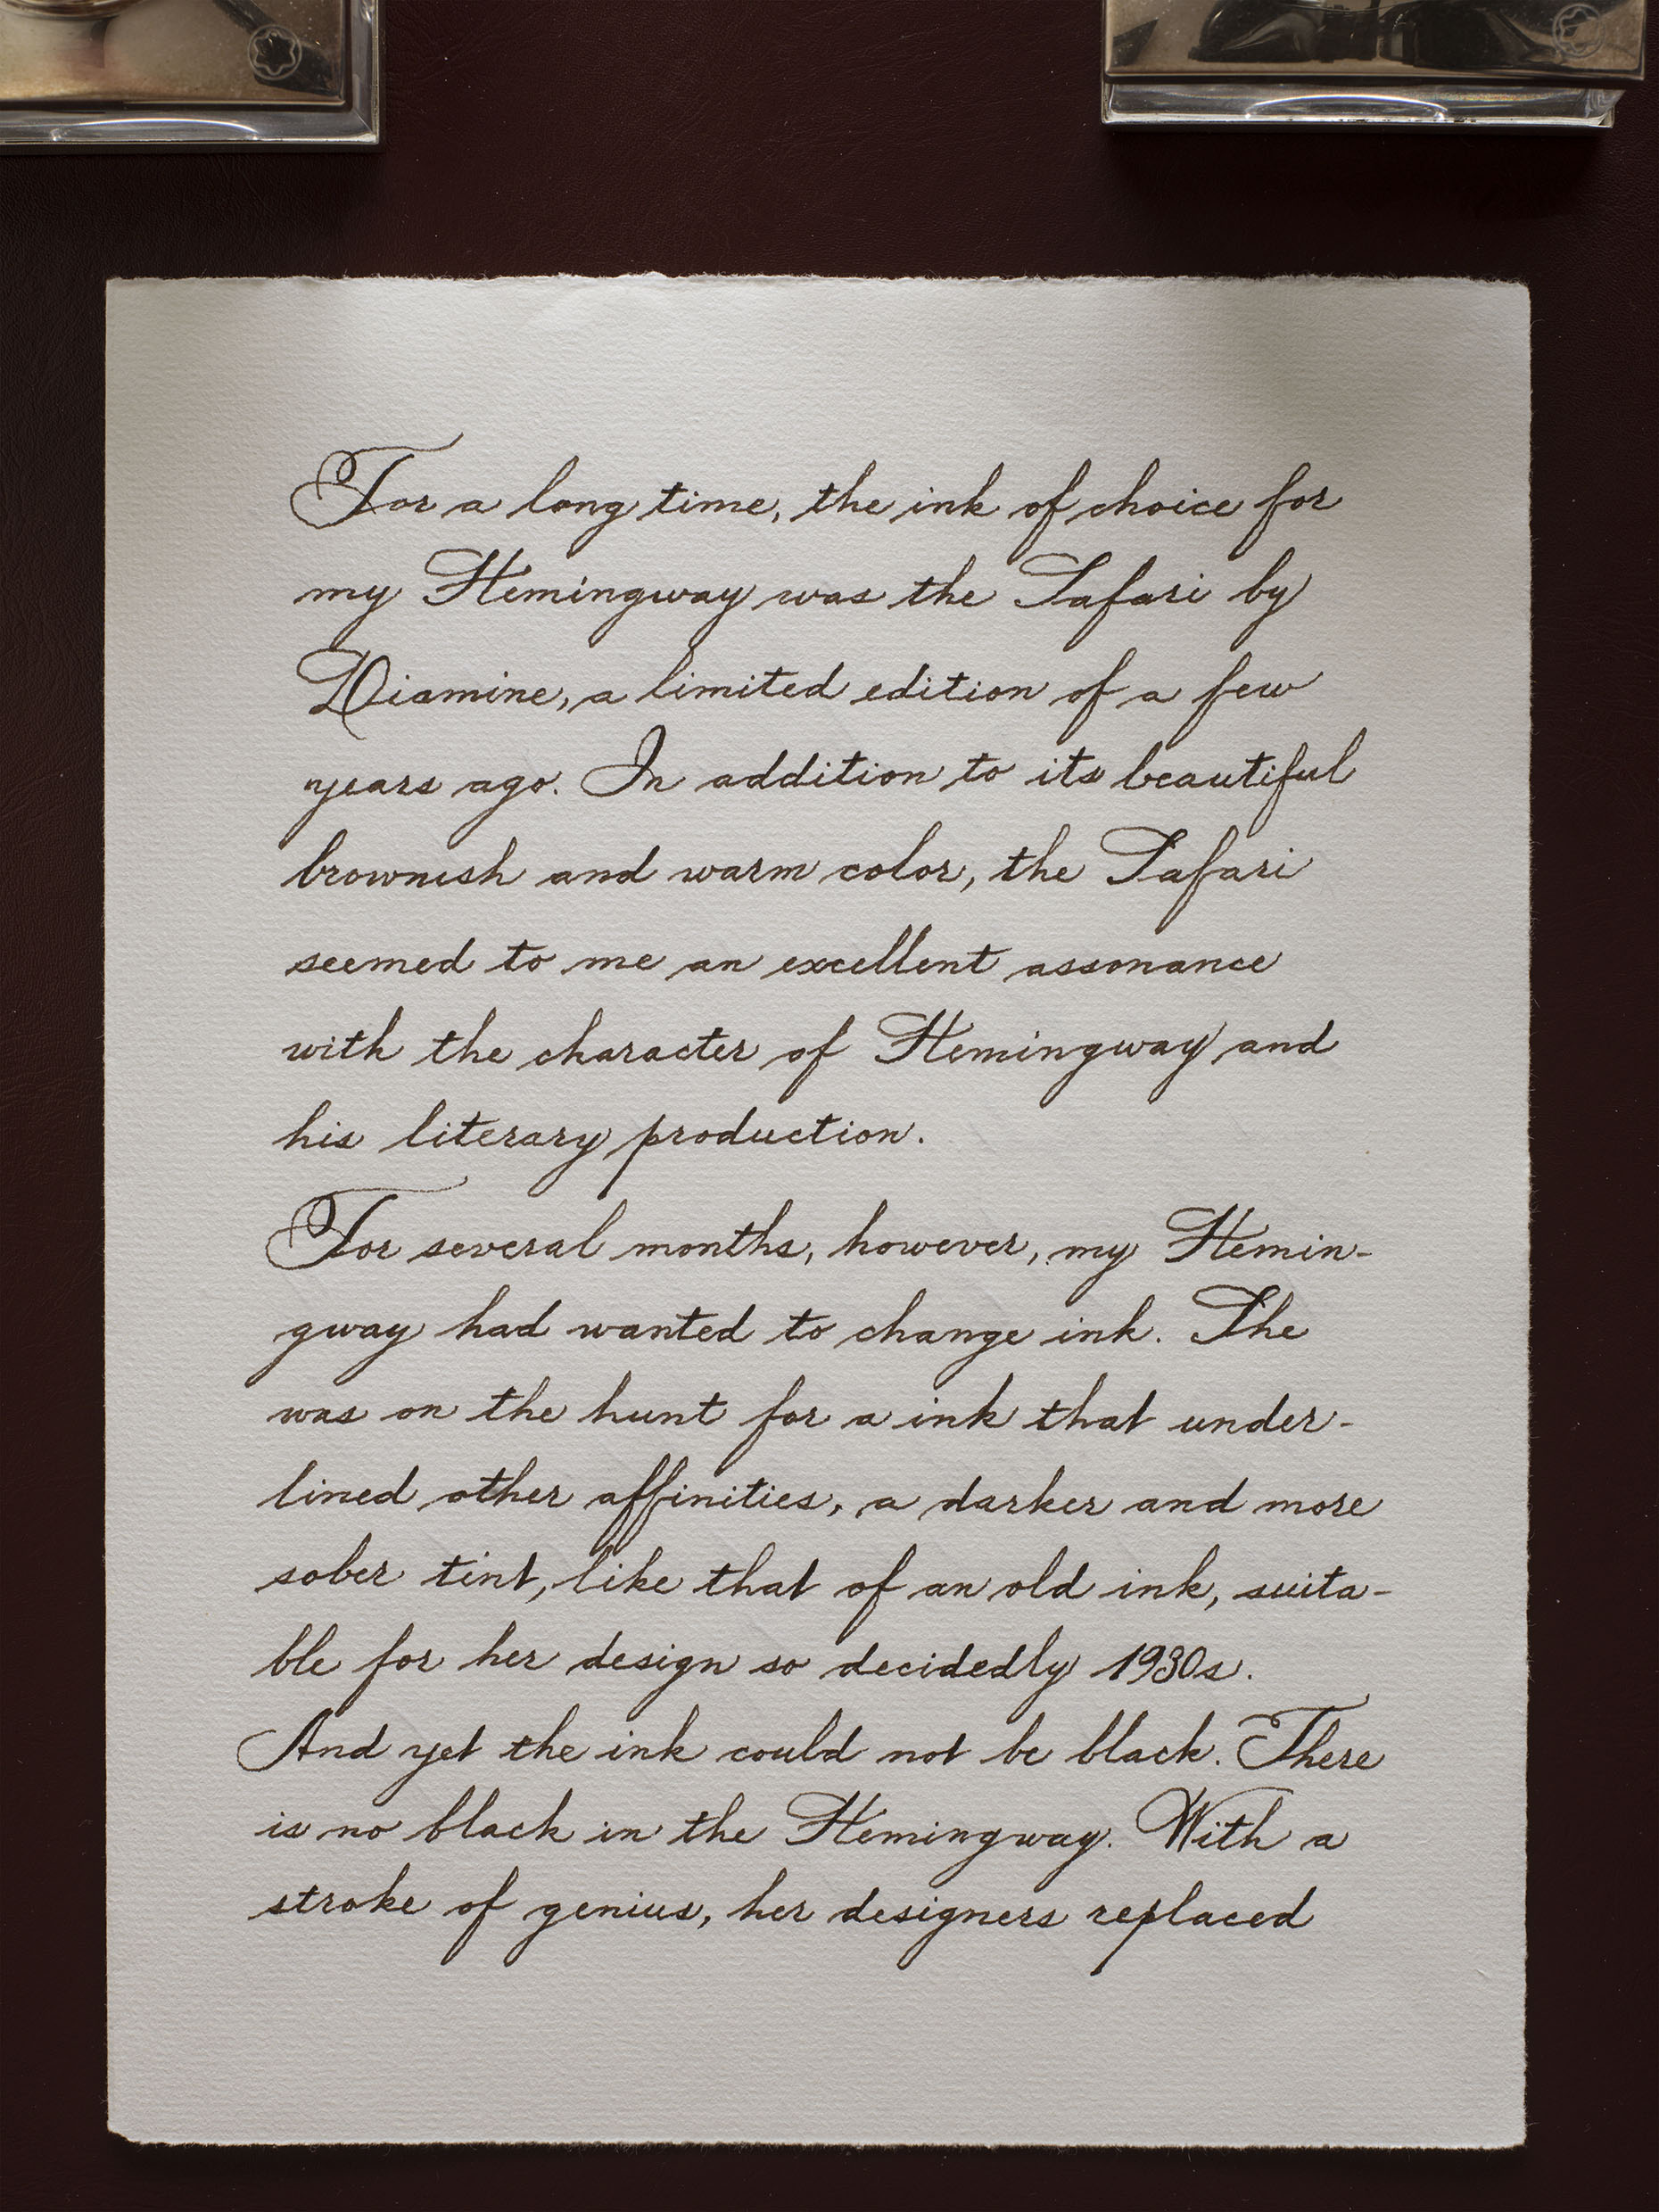 For a long time, the ink of choice for
my Hemingway was the Safari by
Diamine, a limited edition of a few
years ago. In addition to its beautiful
brownish and warm color, the Safari
seemed to me an excellent assonance
with the character of Hemingway and
his literary production.
For several months, however, my Hemin-
gway had wanted to change ink. She
was on the hunt for a ink that under-
lined other affinities, a darker and more
sober tint, like that of an old ink, suita-
ble for her design so decidedly 1930s.
And yet the ink could not be black. There
is no black in the Hemingway. With a
stroke of genius, her designers replaced